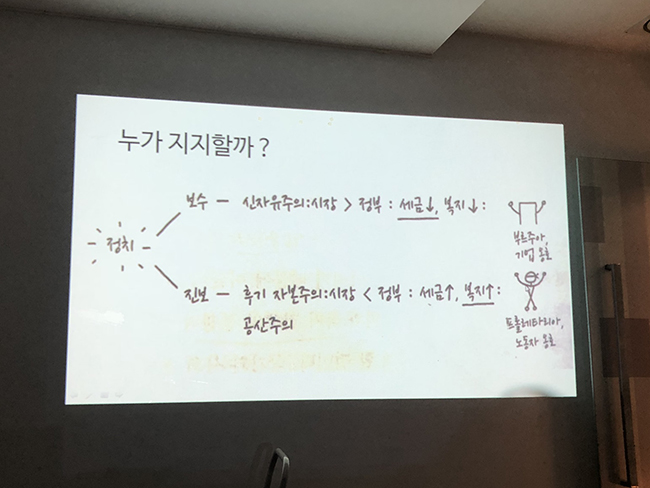 누가 지지할까?
보수 - 신자유주의:시장 > 정부 : 세금↓, 복지↓ :
부르주아,
기업 옹호
정치
진보 - 후기 자본주의:시장 < 정부 : 세금↑, 복지↑ :
공산주의
프롤레타리아,
노동자 옹호